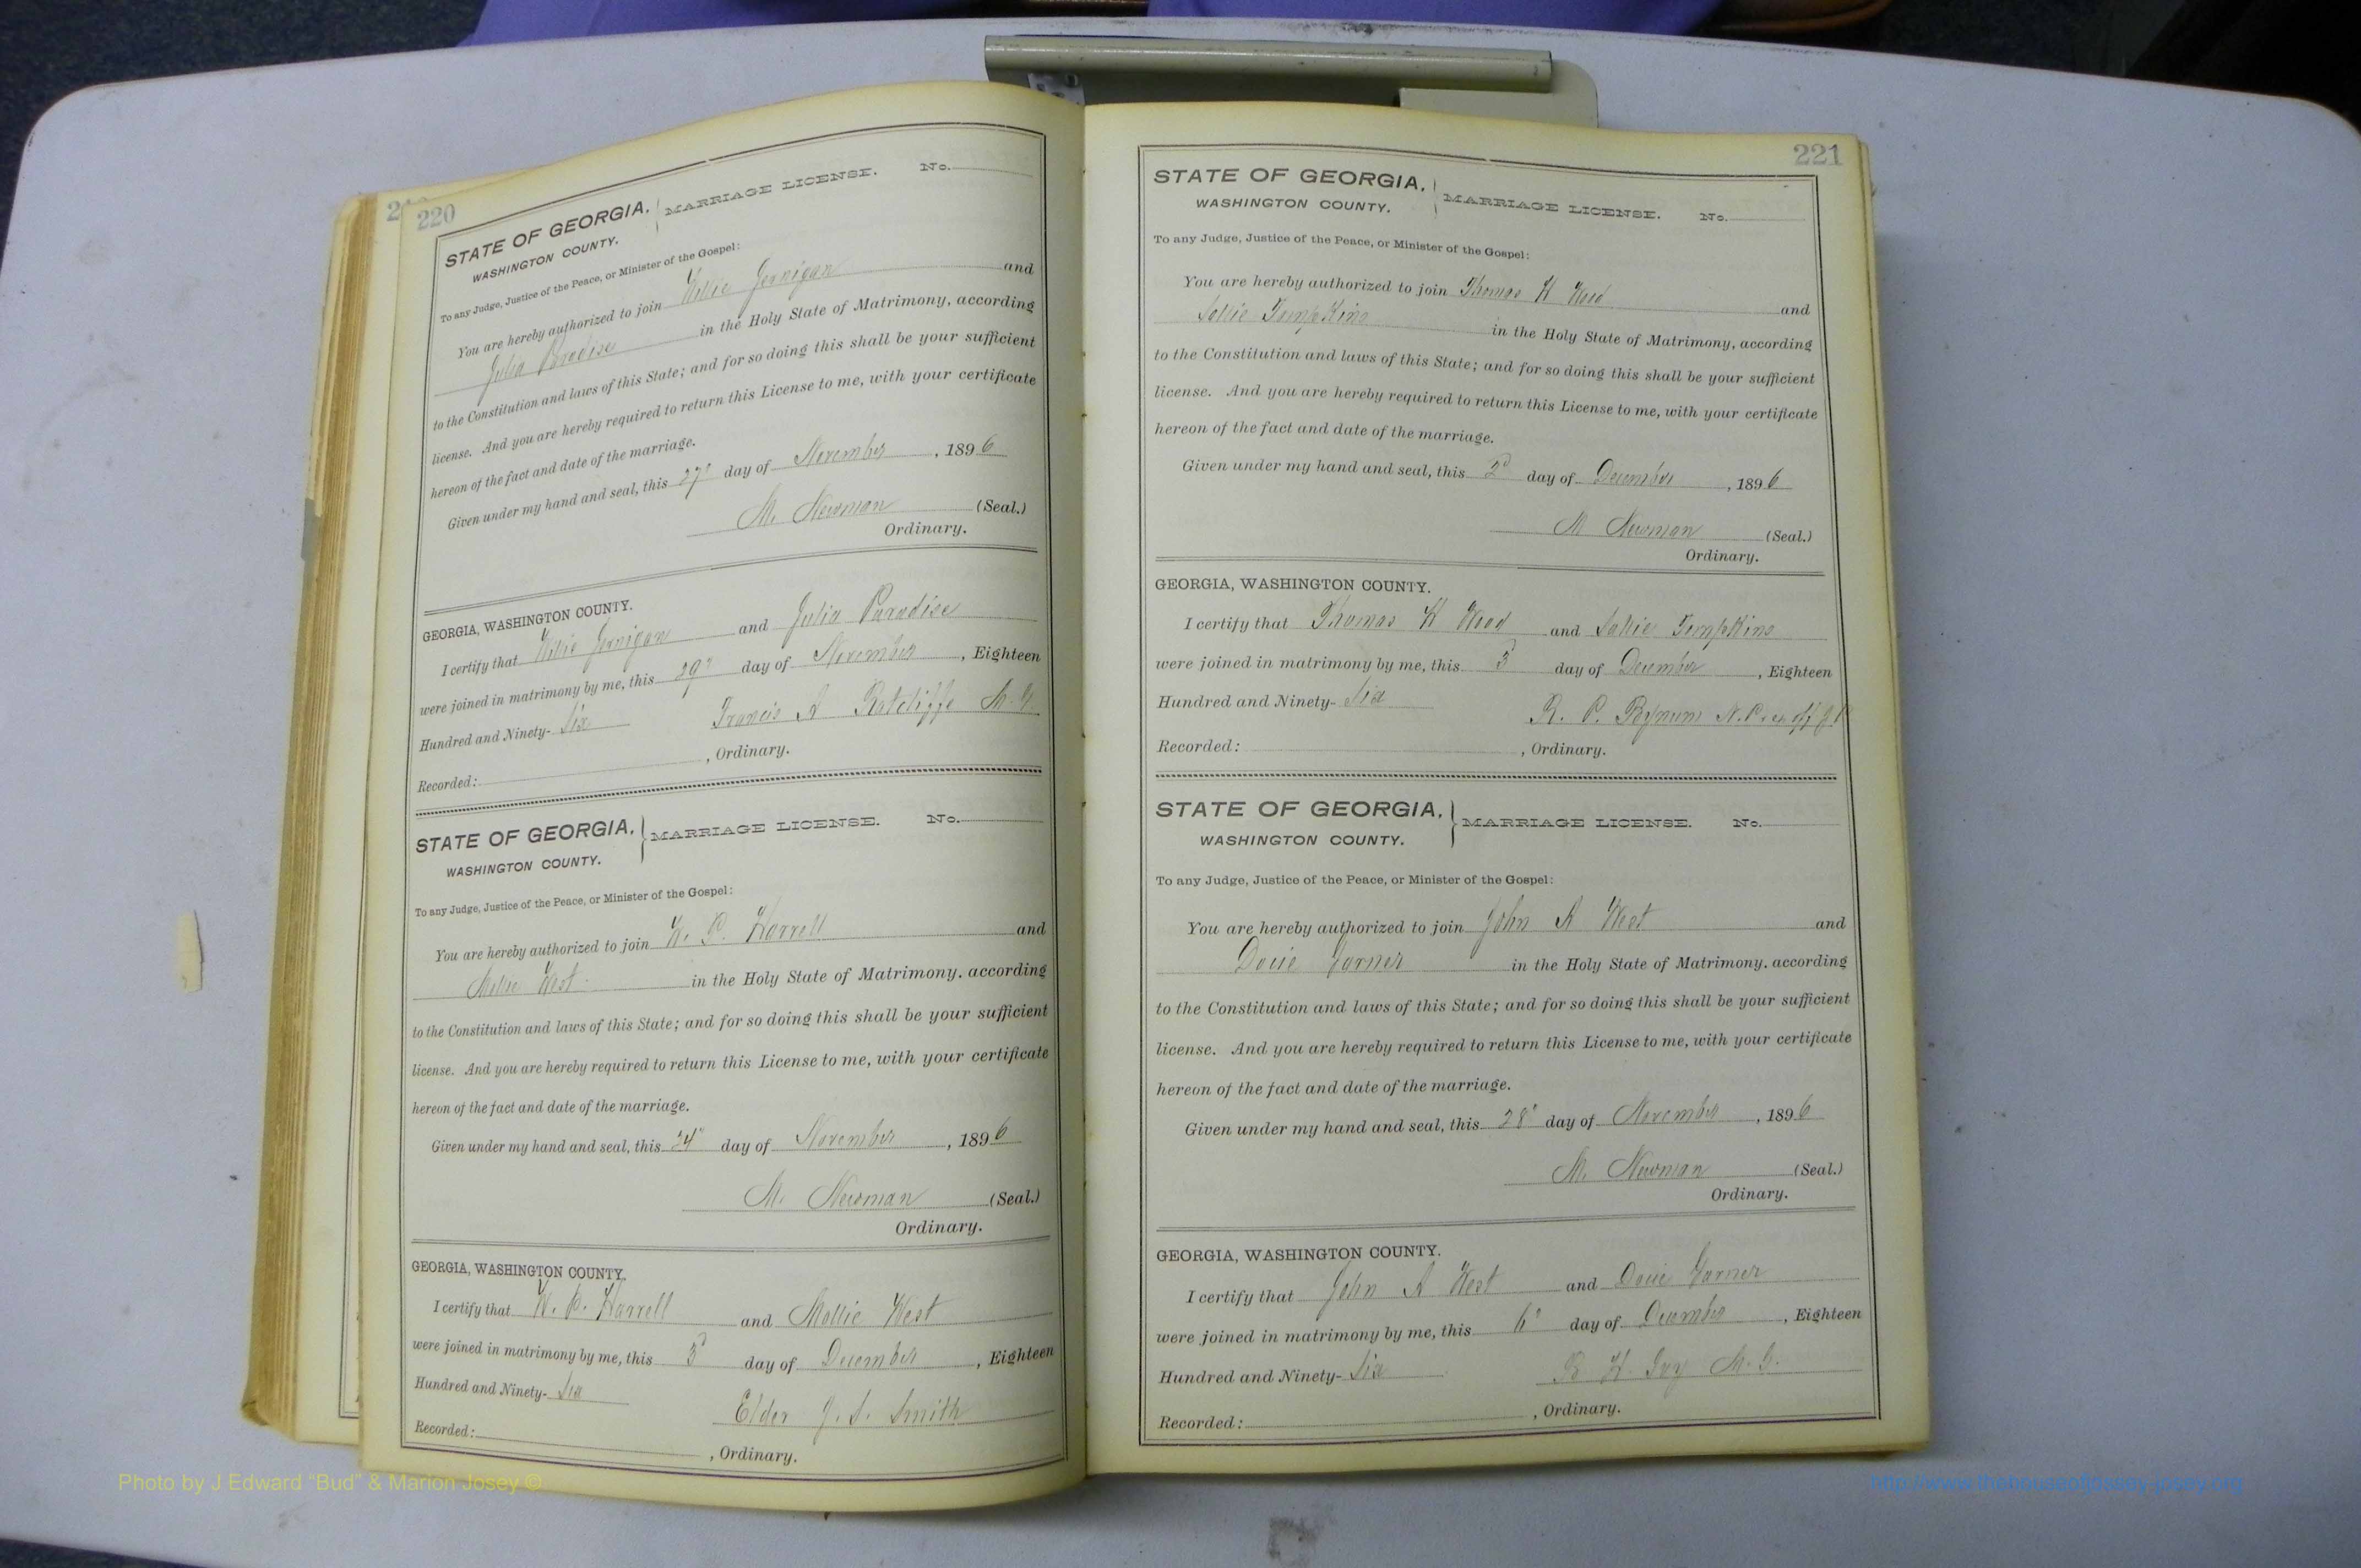 220
STATE OF GEORGIA,
WASHINGTON COUNTY.
MARRIAGE LICENSE. No.
To any Judge, Justice of the Peace, or Minister of the Gospel:
You are hereby authorized to join Willie Jernigan and
Julia Paradise in the Holy State of Matrimony, according
to the Constitution and laws of this State; and for so doing this shall be your sufficient
license. And you are hereby required to return this License to me, with your certificate
hereon of the fact and date of the marriage.
Given under my hand and seal, this 27" day of November, 1896
M. Newman (Seal.)
Ordinary.
GEORGIA, WASHINGTON COUNTY.
I certify that Willie Jernigan and Julia Paradise
were joined in matrimony by me, this 29" day of November, Eighteen
Hundred and Ninety-Six Francis A Ratcliffe M. G
Recorded: , Ordinary.
STATE OF GEORGIA,
WASHINGTON COUNTY.
MARRIAGE LICENSE. No.
To any Judge, Justice of the Peace, or Minister of the Gospel:
You are hereby authorized to join W. P. Harrell and
Mollie West in the Holy State of Matrimony, according
to the Constitution and laws of this State; and for so doing this shall be your sufficient
license. And you are hereby required to return this License to me, with your certificate
hereon of the fact and date of the marriage.
Given under my hand and seal, this 24" day of November, 1896
M. Newman (Seal.)
Ordinary.
GEORGIA, WASHINGTON COUNTY.
I certify that W. P. Harrell and Mollie West
were joined in matrimony by me, this 3d day of December, Eighteen
Hundred and Ninety-Six Elder J. S. Smith
Recorded: , Ordinary.
221
STATE OF GEORGIA,
WASHINGTON COUNTY.
MARRIAGE LICENSE. No.
To any Judge, Justice of the Peace, or Minister of the Gospel:
You are hereby authorized to join Thomas H Wood and
Sallie Tompkins in the Holy State of Matrimony, according
to the Constitution and laws of this State; and for so doing this shall be your sufficient
license. And you are hereby required to return this License to me, with your certificate
hereon of the fact and date of the marriage.
Given under my hand and seal, this 2d day of December, 1896
M Newman (Seal.)
Ordinary.
GEORGIA, WASHINGTON COUNTY.
I certify that Thomas H Wood and Sallie Tompkins
were joined in matrimony by me, this 3 day of December, Eighteen
Hundred and Ninety-Six R. P. Bynum N.P. ex off J P
Recorded: , Ordinary.
STATE OF GEORGIA,
WASHINGTON COUNTY.
MARRIAGE LICENSE. No.
To any Judge, Justice of the Peace, or Minister of the Gospel:
You are hereby authorized to join John A West and
Dovie Garner in the Holy State of Matrimony, according
to the Constitution and laws of this State; and for so doing this shall be your sufficient
license. And you are hereby required to return this License to me, with your certificate
hereon of the fact and date of the marriage.
Given under my hand and seal, this 28" day of November, 1896
M. Newman (Seal.)
Ordinary.
GEORGIA, WASHINGTON COUNTY.
I certify that John A West and Dovie Garner
were joined in matrimony by me, this 6" day of December, Eighteen
Hundred and Ninety-Six R H Ivy M. G.
Recorded: , Ordinary.
Photo by J Edward "Bud" & Marion Josey ©
http://www.thehouseofjossey-josey.org